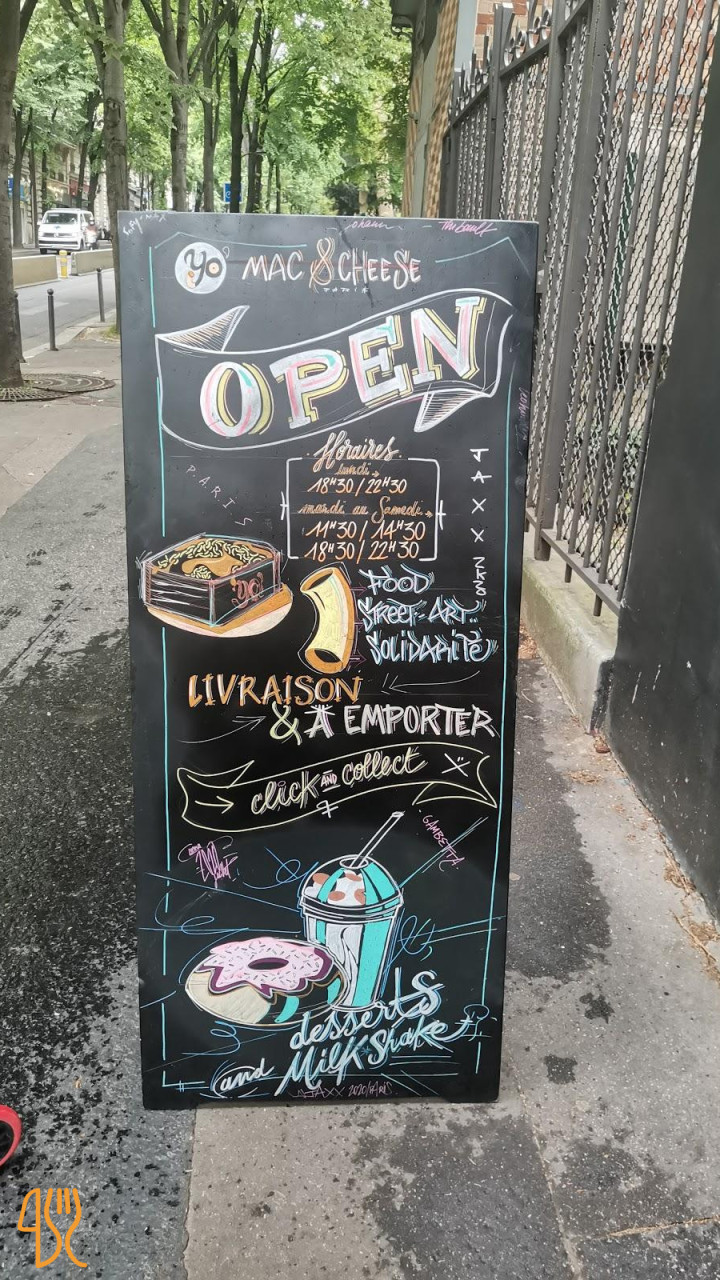 Thibault
yo
MAC & CHEESE
OPEN
PARIS
Horaires
lundi
18H30 / 22H30
mardi au Samedi
11H30 / 14H30
18H30 / 22H30
JAXX
yo
FOOD
STREET-ART
SOLIDARITÉ
LIVRAISON
& À EMPORTER
click AND collect
GAMBETTA
desserts
and MilkShake
JAXX 2020/PARIS